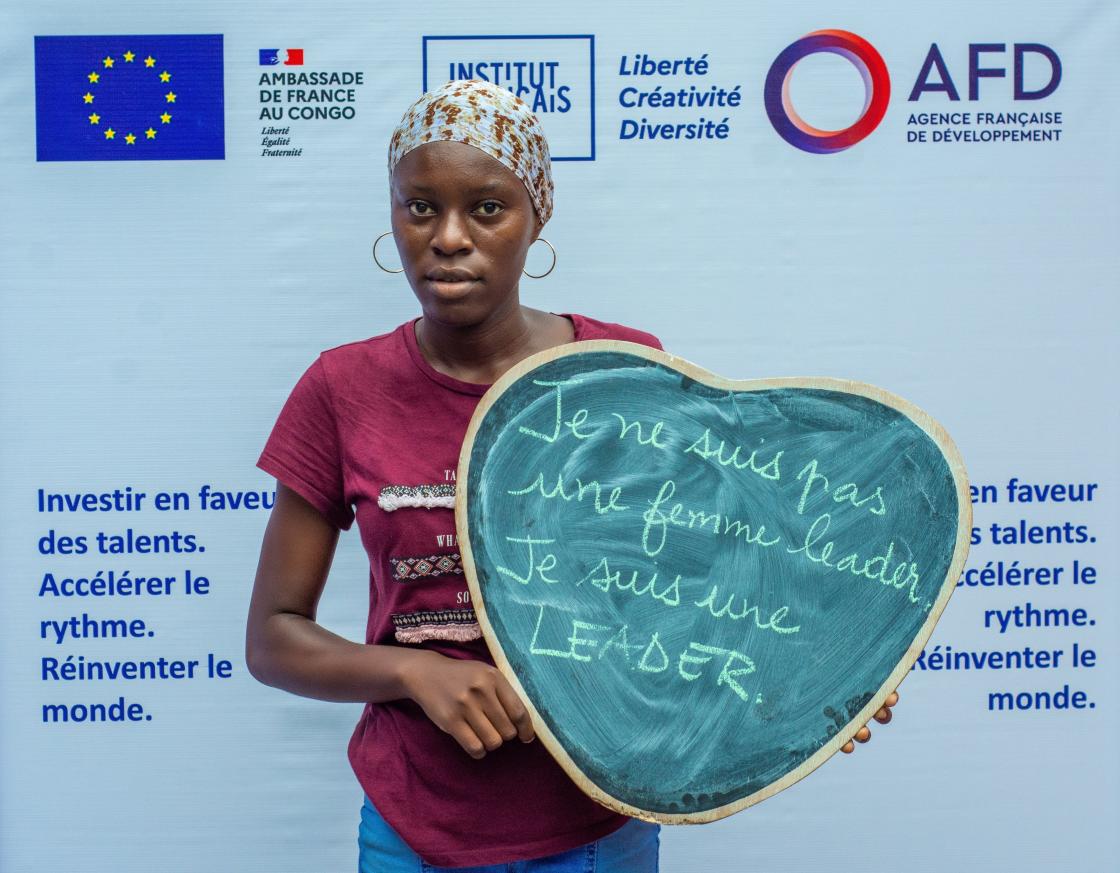 AMBASSADE
DE FRANCE
AU CONGO
Liberté
Égalité
Fraternité
INSTITUT
Liberté
Créativité
Diversité
AFD
AGENCE FRANÇAISE
DE DÉVELOPPEMENT
Je ne suis pas
une femme leader.
Je suis une
LEADER.
Investir en faveu
des talents.
Accélérer le
rythme.
Réinventer le
monde.
en faveur
talents.
ccélérer le
rythme.
Réinventer le
monde.
TA
WHA
SO